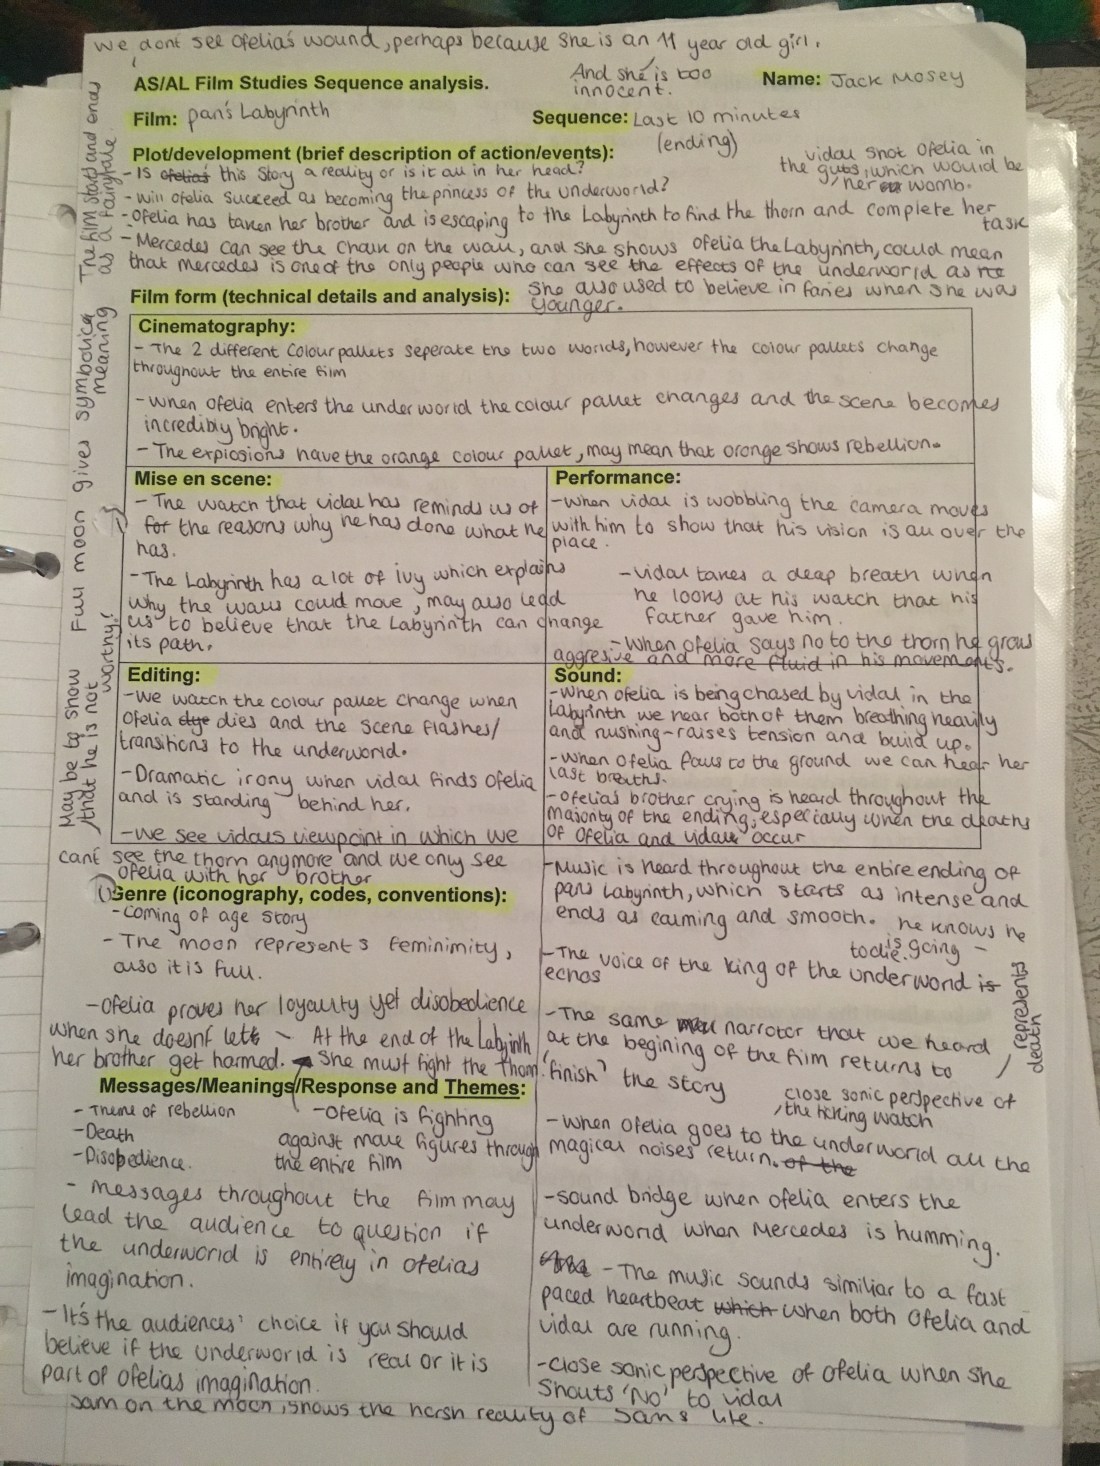 we dont see Ofelia's wound, perhaps because she is an 11 year old girl.
And she is too
innocent.
AS/AL Film Studies Sequence analysis.
Name: Jack Mosey
Film: pan's Labyrinth
Sequence: Last 10 minutes
(ending)
Plot/development (brief description of action/events):
vidal shot Ofelia in
the guts, which would be
her womb.
- Is ofelia's this story a reality or is it all in her head?
- will ofelia succeed as becoming the princess of the underworld?
- Ofelia has taken her brother and is escaping to the Labyrinth to find the thorn and complete her
task
- Mercedes can see the chalk on the wall, and she shows ofelia the Labyrinth, could mean
that mercedes is one of the only people who can see the effects of the underworld as
she also used to believe in faries when she was
younger.
The film start and ends
as a fairytale.
Film form (technical details and analysis):
Cinematography:
- The 2 different colour pallets seperate the two worlds, however the colour pallets change
throughout the entire film
- when Ofelia enters the underworld the colour pallet changes and the scene becomes
incredibly bright.
- The explosions have the orange colour pallet, may mean that orange shows rebellion.
Full moon gives symbolica
meaning
Mise en scene:
- The watch that vidal has reminds us of
for the reasons why he has done what he
has.
- The Labyrinth has a lot of ivy which explains
why the walls could move, may also lead
us to believe that the Labyrinth can change
its path.
Performance:
- when vidal is wobbling the camera moves
with him to show that his vision is all over the
place.
- vidal takes a deap breath when
he looks at his watch that his
Father gave him.
- when ofelia says no to the thorn he grows
aggresive and more fluid in his movements.
May be to show
that he is not
worthy?
Editing:
- we watch the colour pallet change when
Ofelia dye dies and the scene flashes/
transitions to the underworld.
- Dramatic irony when vidal finds ofelia
and is standing behind her.
- we see vidals viewpoint in which we
cant see the thorn anymore and we only see
ofelia with her brother
Sound:
- when ofelia is being chased by vidal in the
Labyrinth we hear both of them breathing heavily
and rushing - raises tension and build up.
- when Ofelia falls to the ground we can hear her
last breaths.
- Ofelias brother crying is heard throughout the
majority of the ending, especially when the deaths
of Ofelia and vidal occur
- Music is heard throughout the entire ending of
pans Labyrinth, which starts as intense and
ends as calming and smooth.
he knows he
is going
to die.
- The voice of the king of the underworld is
echos
- The same narrator that we heard
at the begining of the film returns to
'finish' the story
represents
death
close sonic perspective of
the ticking watch
- when Ofelia goes to the underworld all the
magical noises return. of the
- sound bridge when ofelia enters the
underworld when Mercedes is humming.
- The music sounds similiar to a fast
paced heartbeat which when both Ofelia and
vidal are running.
- close sonic perspective of Ofelia when she
shouts 'No' to vidal
Genre (iconography, codes, conventions):
- coming of age story
- The moon represents feminimity,
also it is full.
- Ofelia proves her loyaulty yet disobedience
when she doesnt lets
her brother get harmed.
At the end of the Labyinth
she must fight the thorn.
Messages/Meanings/Response and Themes:
- Theme of rebellion
- Death
- Disobedience.
- Ofelia is fighting
against male figures through
the entire film
- messages throughout the film may
lead the audience to question if
the underworld is entirely in ofelias
imagination.
- It's the audiences' choice if you should
believe if the underworld is real or it is
part of ofelias imagination.
Sam on the moon, shows the harsh reality of Sam's life.